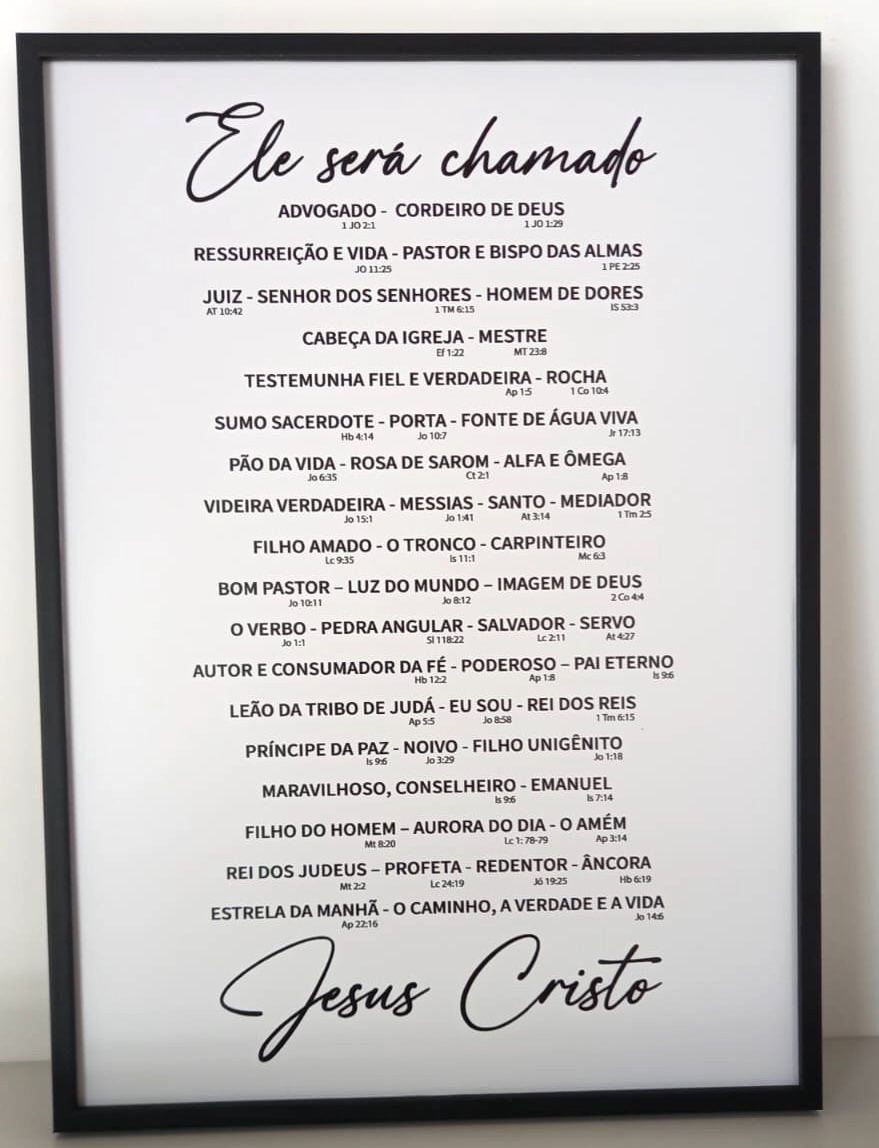 Ele será chamado
ADVOGADO - CORDEIRO DE DEUS
1 JO 2:1 1 JO 1:29
RESSURREIÇÃO E VIDA - PASTOR E BISPO DAS ALMAS
JO 11:25 1 PE 2:25
JUIZ - SENHOR DOS SENHORES - HOMEM DE DORES
AT 10:42 1 TM 6:15 IS 53:3
CABEÇA DA IGREJA - MESTRE
Ef 1:22 MT 23:8
TESTEMUNHA FIEL E VERDADEIRA - ROCHA
Ap 1:5 1 Co 10:4
SUMO SACERDOTE - PORTA - FONTE DE ÁGUA VIVA
Hb 4:14 Jo 10:7 Jr 17:13
PÃO DA VIDA - ROSA DE SAROM - ALFA E ÔMEGA
Jo 6:35 Ct 2:1 Ap 1:8
VIDEIRA VERDADEIRA - MESSIAS - SANTO - MEDIADOR
Jo 15:1 Jo 1:41 At 3:14 1 Tm 2:5
FILHO AMADO - O TRONCO - CARPINTEIRO
Lc 9:35 Is 11:1 Mc 6:3
BOM PASTOR – LUZ DO MUNDO – IMAGEM DE DEUS
Jo 10:11 Jo 8:12 2 Co 4:4
O VERBO - PEDRA ANGULAR - SALVADOR - SERVO
Jo 1:1 Sl 118:22 Lc 2:11 At 4:27
AUTOR E CONSUMADOR DA FÉ - PODEROSO – PAI ETERNO
Hb 12:2 Ap 1:8 Is 9:6
LEÃO DA TRIBO DE JUDÁ - EU SOU - REI DOS REIS
Ap 5:5 Jo 8:58 1 Tm 6:15
PRÍNCIPE DA PAZ - NOIVO - FILHO UNIGÊNITO
Is 9:6 Jo 3:29 Jo 1:18
MARAVILHOSO, CONSELHEIRO - EMANUEL
Is 9:6 Is 7:14
FILHO DO HOMEM – AURORA DO DIA - O AMÉM
Mt 8:20 Lc 1: 78-79 Ap 3:14
REI DOS JUDEUS – PROFETA - REDENTOR - ÂNCORA
Mt 2:2 Lc 24:19 Jó 19:25 Hb 6:19
ESTRELA DA MANHÃ - O CAMINHO, A VERDADE E A VIDA
Ap 22:16 Jo 14:6
Jesus Cristo